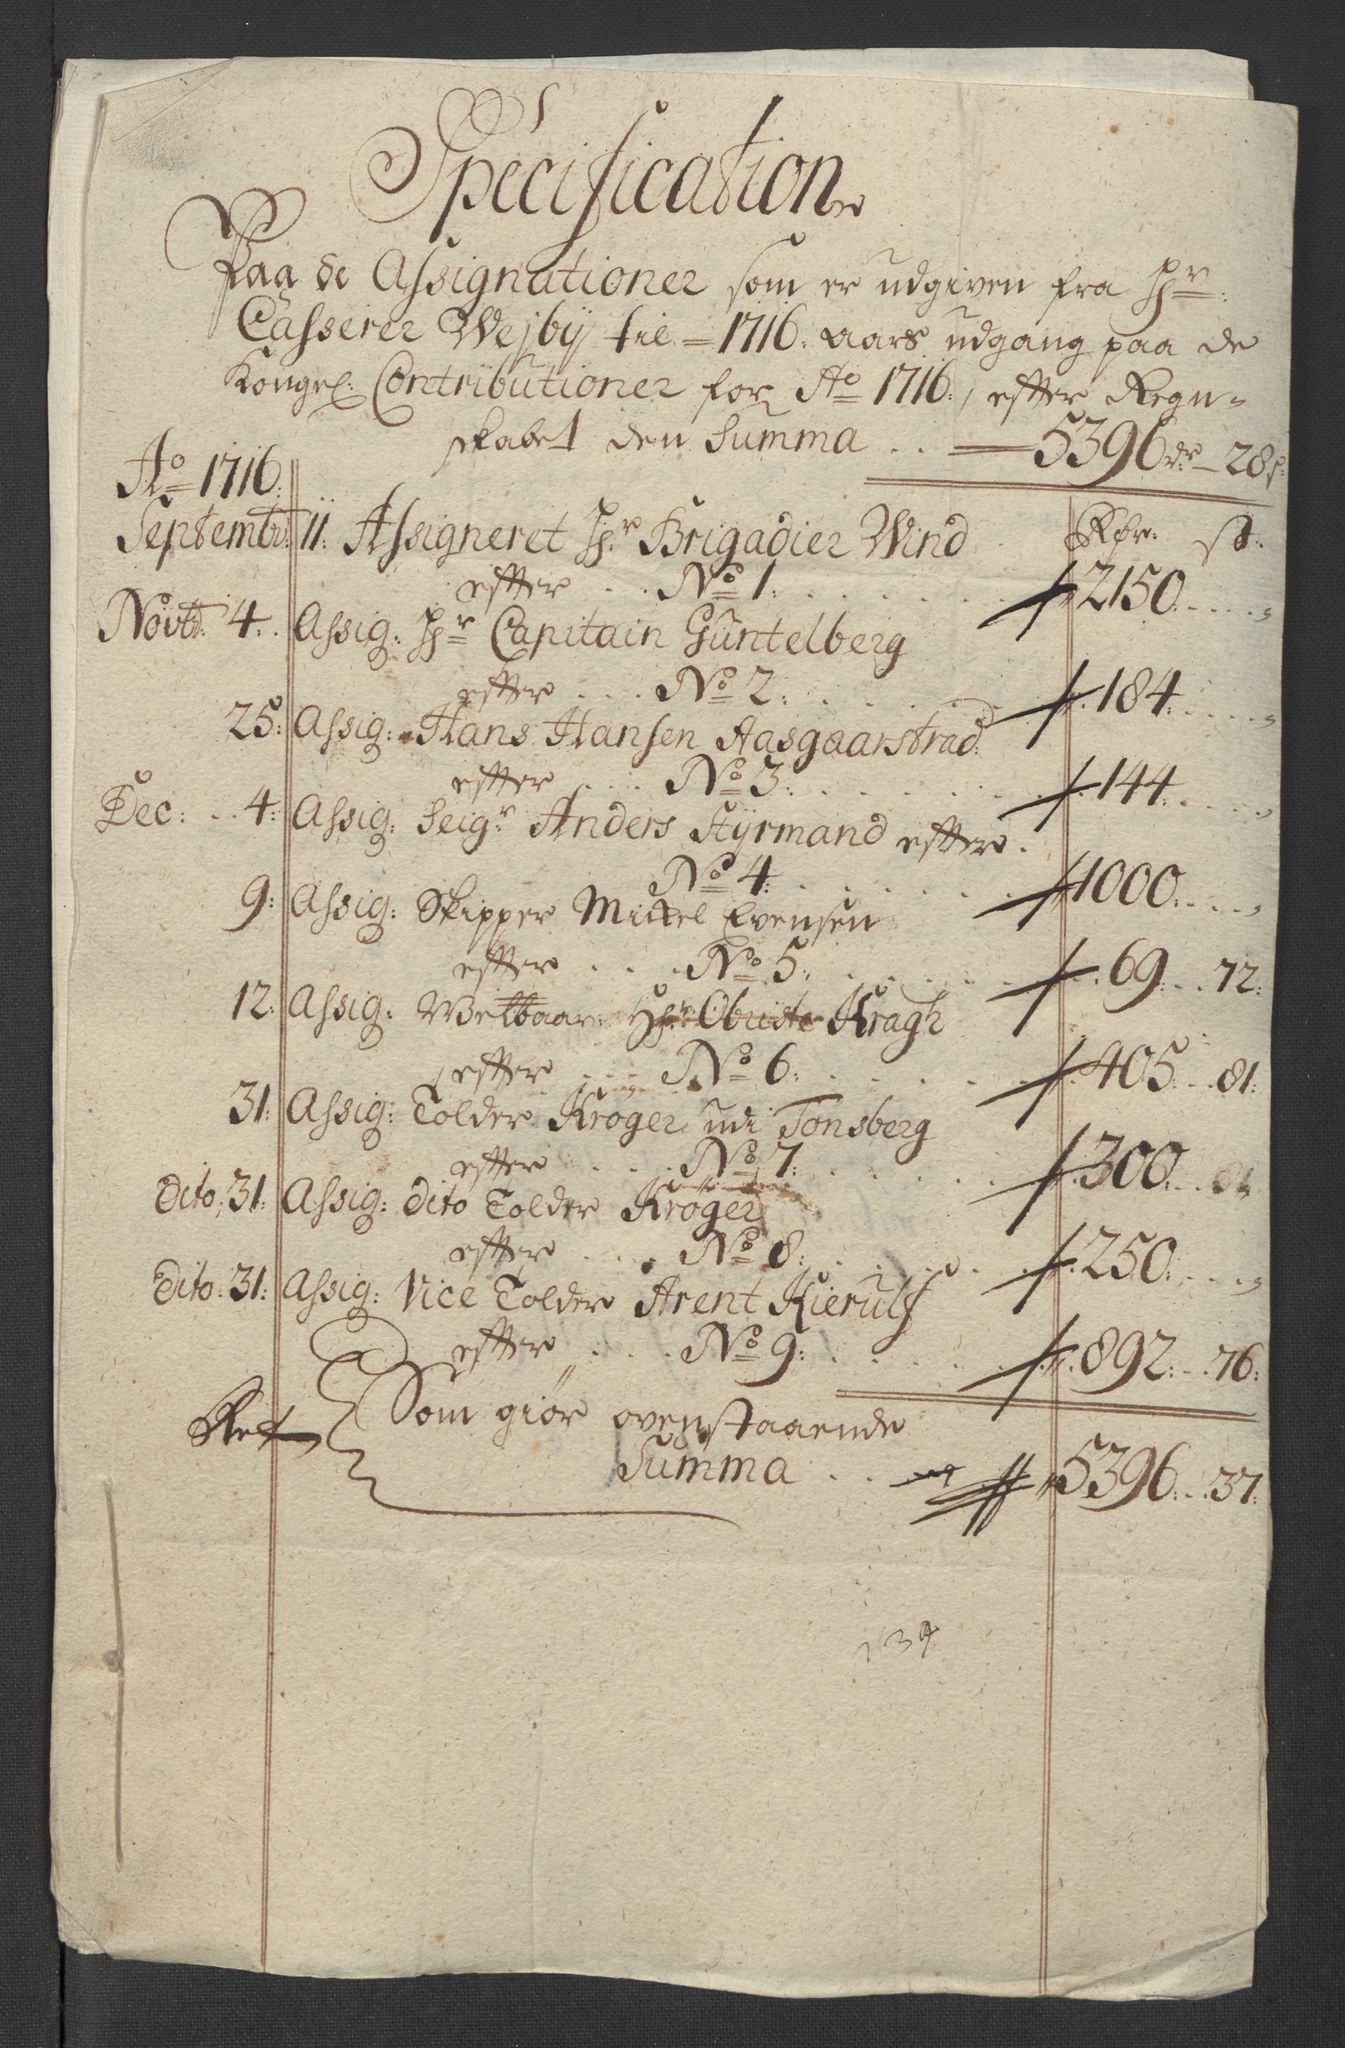 Specification
Paa de Assignationer som er udgiven fra Hr:
Casserer Wejbÿ til 1716. aars udgang paa de
Kongel: Contributioner for Ao 1716, efter Regn-
skabet den Summa .. 5396 dr 28 s:
Ao 1716:
Septembr: 11: Assigneret Hr: Brigadier Wind Rdr: s:
efter .. No 1. 2150.
Novb: 4. Assig: Hr Capitain Güntelberg
efter ... No 2: 184.
25: Assig: Hans Hansen Aasgaarstrad:
efter ... No 3: 144.
Dec: 4: Assig: Seigr Anders Stÿrmand efter.
No 4: 1000.
9: Assig: Skipper Mickel Evensen
efter ... No 5: 69. 72.
12: Assig: Welbaar: Hr: Obriste Kragh
efter ... No 6: 405. 81.
31: Assig: Tolder Krøger udi Tonsberg
efter ... No 7: 300.
Dito: 31: Assig: dito Tolder Krøger
efter ... No 8: 250.
Dito: 31: Assig: Vice Tolder Arent Kierulf
efter ... No 9: 892. 76:
Som giør ovenstaaende
Summa .. 5396. 37: